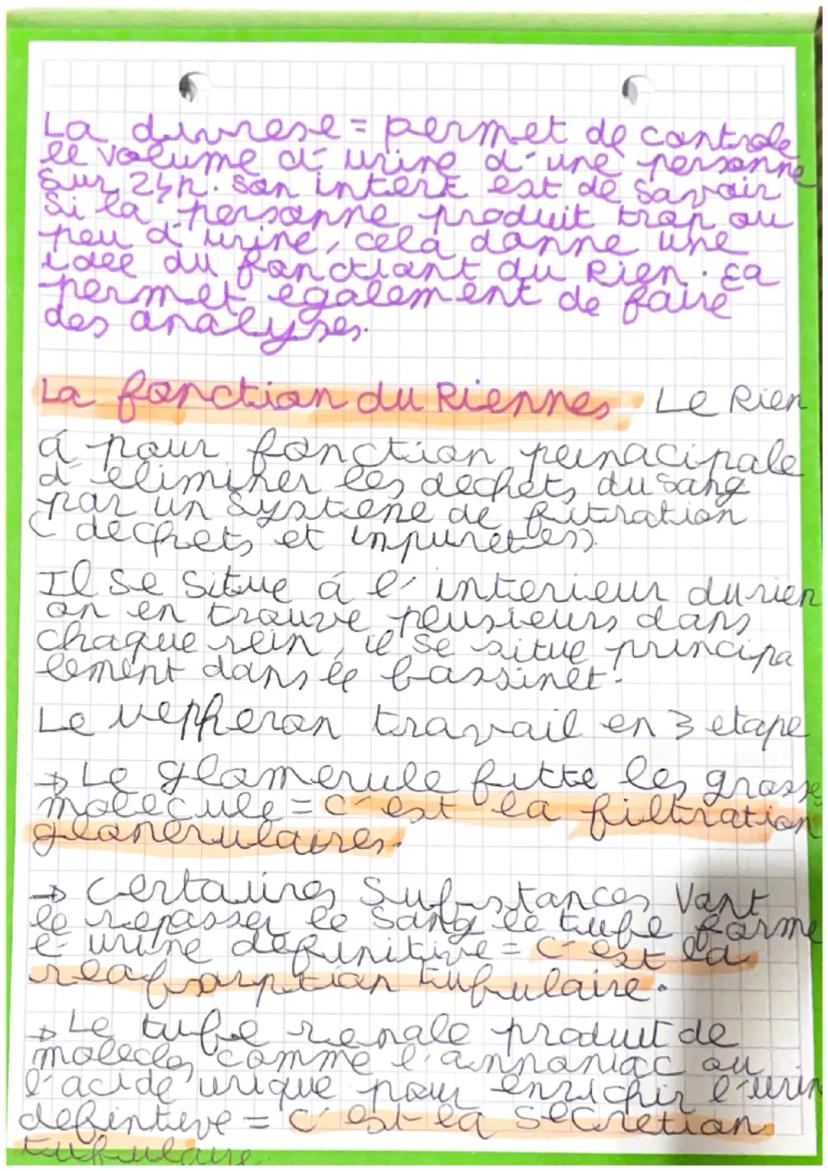 La diurese = permet de controle
le volume d'urine d'une personne
sur 24h. son intert est de savoir
si la personne produit trop ou
peu d'urine, cela donne une
idee du fonctiont du Rien. ça
permet egalement de faire
des analyses.
La fonction du Riennes Le Rien
á pour fonction peinacipale
d'eliminer les dechets du sang
par un systiene de futiration
( dechets et impuretées)
Il se situe á l'interieur du rien
on en trouve plusieurs dans
chaque rein, il se situe principa
lement dans le bassinet.
Le nepheron travail en 3 etape
→ Le glomerule fitte les grosse
molecule = c'est la filtiration
glonerulaires.
→ certaines substances vont
le repasser le sang le tube forme
l'urine definitive = c'est la
reabsorption tubulaire.
→ Le tube renale produit de
molecles comme l'annoniac ou
l'acide urique pour enrichir l'urin
defintive = c'est la secretion
tubulaire.